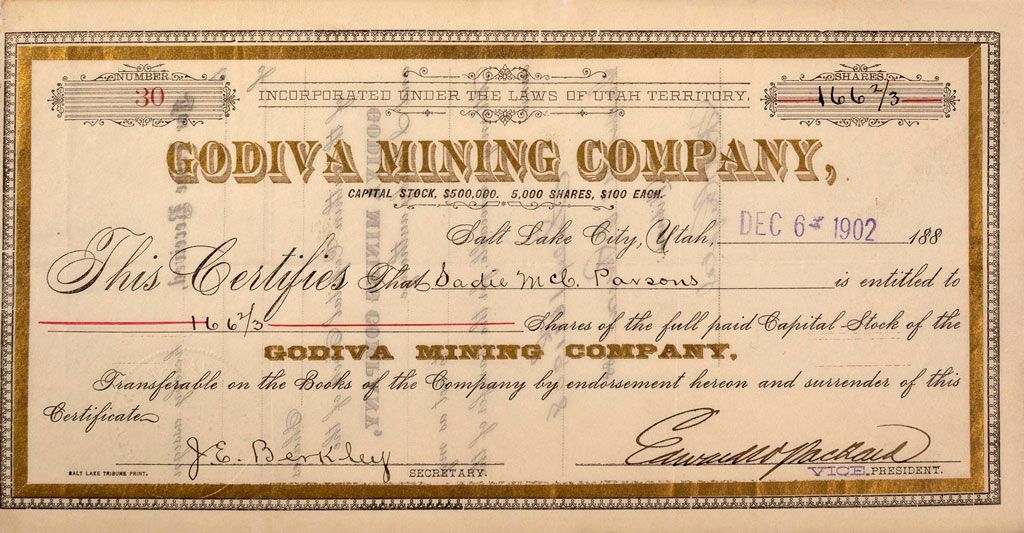 NUMBER.
30
INCORPORATED UNDER THE LAWS OF UTAH TERRITORY.
SHARES.
166 2/3
GODIVA MINING COMPANY,
CAPITAL STOCK, $500,000. 5,000 SHARES, $100 EACH.
Salt Lake City, Utah, DEC 6 1902 188
This Certifies That Sadie McC. Parsons is entitled to
166 2/3 Shares of the full paid Capital Stock of the
GODIVA MINING COMPANY.
Transferable on the Books of the Company by endorsement hereon and surrender of this
Certificate
J. E. Berkley
SALT LAKE TRIBUNE PRINT.
SECRETARY.
VICE PRESIDENT.